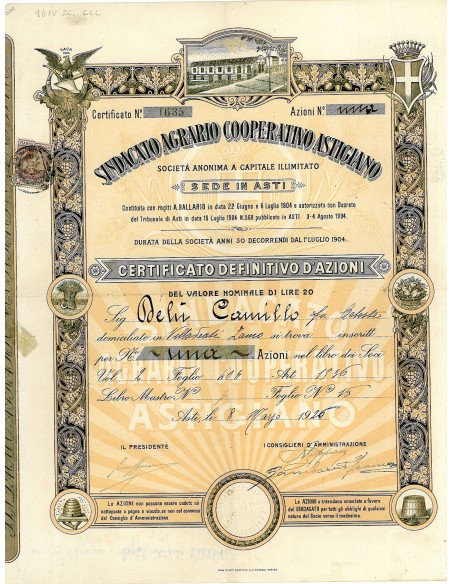 1610 2C. CLL
Certificato N° 1635
Azioni N° una
SINDACATO AGRARIO COOPERATIVO ASTIGIANO
SOCIETÀ ANONIMA A CAPITALE ILLIMITATO
SEDE IN ASTI
Costituita con rogiti A. BALLARIO in data 22 Giugno e 6 Luglio 1904 e autorizzata con Decreto
del Tribunale di Asti in data 16 Luglio 1904 N. 568 pubblicato in ASTI 3-4 Agosto 1904.
DURATA DELLA SOCIETÀ ANNI 30 DECORRENDI DAL 1° LUGLIO 1904.
CERTIFICATO DEFINITIVO D'AZIONI
DEL VALORE NOMINALE DI LIRE 20
Sig. Delù Camillo fu
domiciliato in si trova inscritto
per N° una Azioni nel libro dei Soci
Vol. 2 Foglio Art. 1536
Libro Mastro N° Foglio N° 15
Asti, li 8 Marzo 1926
IL PRESIDENTE
I CONSIGLIERI D'AMMINISTRAZIONE
Le AZIONI non possono essere cedute nè
sottoposte a pegno o vincolo, se non col consenso
del Consiglio d'Amministrazione.
Le AZIONI s'intendono vincolate a favore
del SINDACATO per tutti gli obblighi di qualsiasi
natura del Socio verso il medesimo.